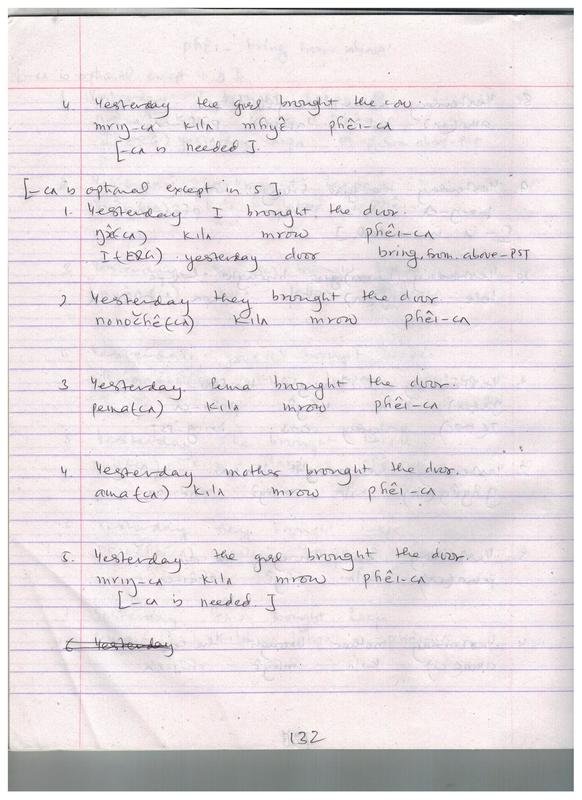 4. Yesterday the girl brought the cow.
mriŋ-cʌ kilʌ mhyê phêi-cʌ
[-cʌ is needed].
[-cʌ is optional except in 5].
1. Yesterday I brought the door.
kilʌ mrow phêi-cʌ
I(ERG) yesterday door bring.from.above-PST
2 Yesterday they brought the door
nonočhê(cʌ) kilʌ mrow phêi-cʌ
3 Yesterday Pema brought the door.
pema(cʌ) kilʌ mrow phêi-cʌ
4. Yesterday mother brought the door.
ama(cʌ) kilʌ mrow phêi-cʌ
5. Yesterday the girl brought the door.
mriŋ-cʌ kilʌ mrow phêi-cʌ
[-cʌ is needed.]
6 Yesterday
132